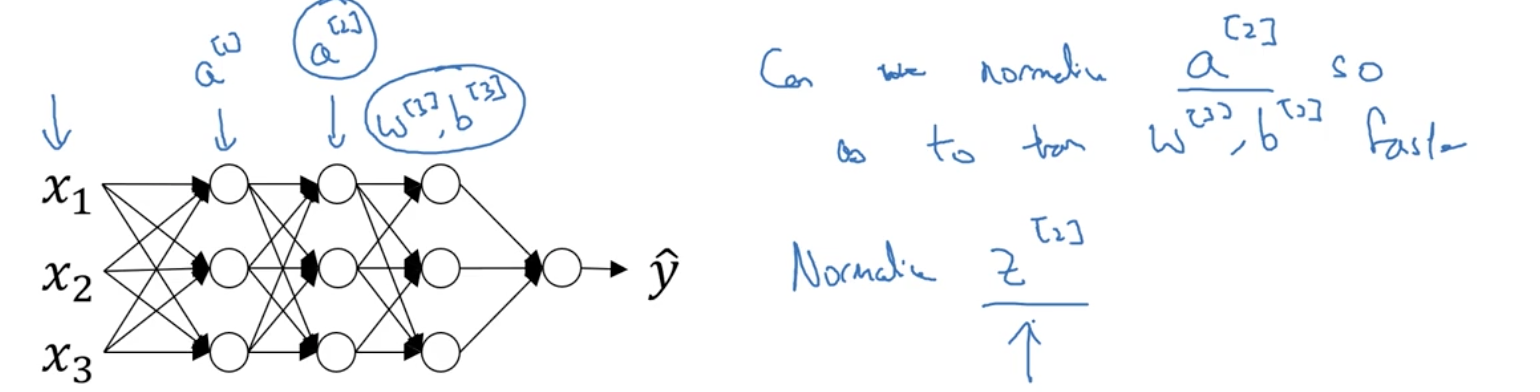 a^[1] a^[2]
w^[3], b^[3]
x₁
x₂
x₃
ŷ
Can we normalize a^[2] so
as to train w^[3], b^[3] faster
Normalize z^[2]